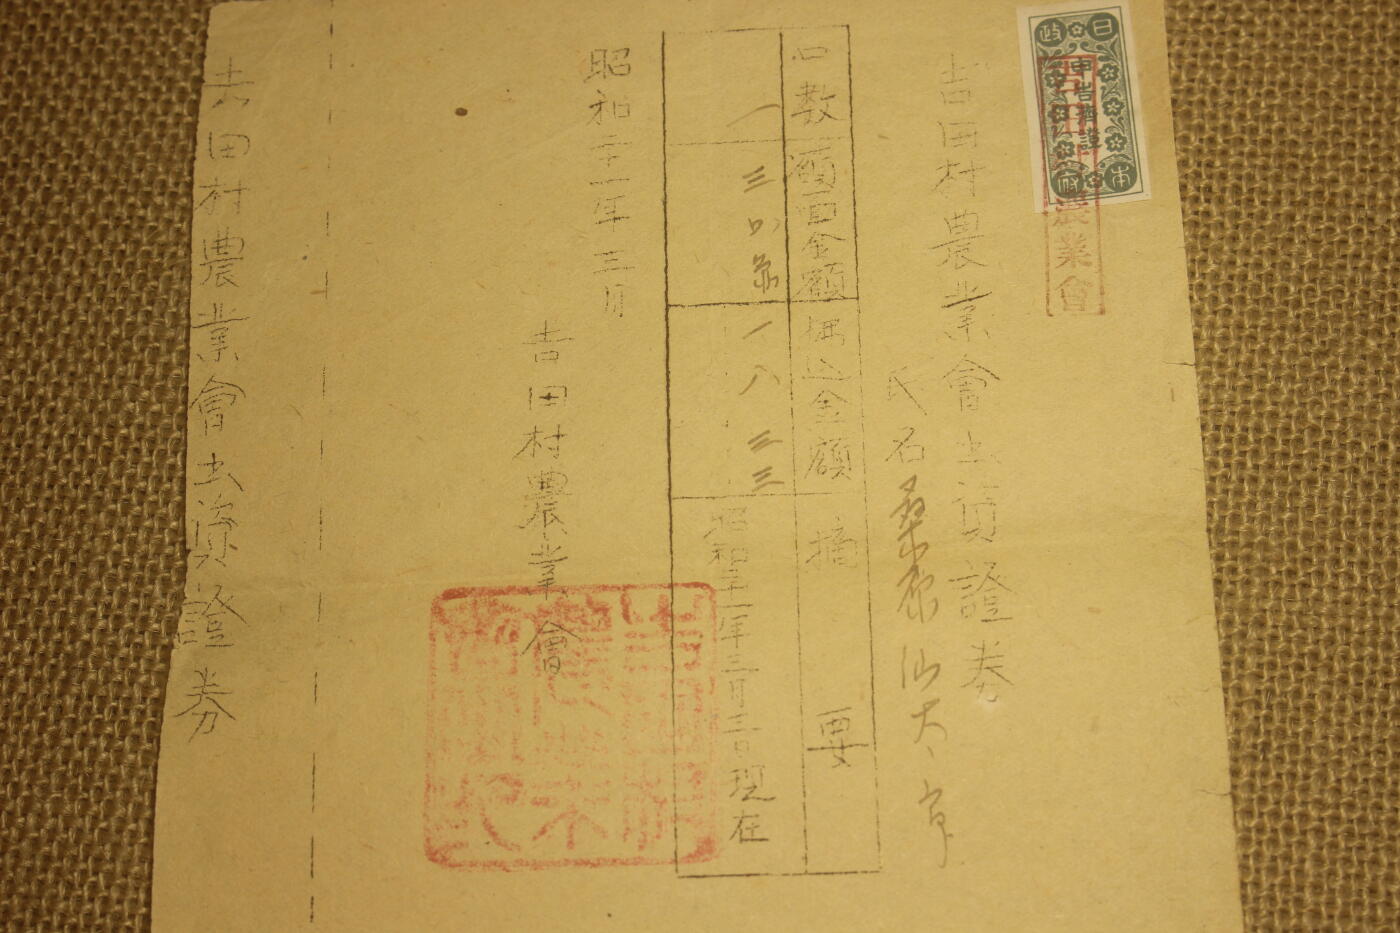 日本政府
申告済證
農業會
吉田村農業會出資證券
氏名 桑原仙太
口数 一
額面金額 三〇
払込金額 一八 三三
摘要
昭和二一年三月三日現在
昭和二十一年三月
吉田村農業會
吉田村農業會出資證券